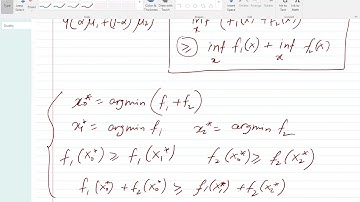 g(αμ₁+(1-α)μ₂)
inf_x (f₁(x)+f₂(x))
≥ inf_x f₁(x) + inf_x f₂(x)
x₀* = argmin (f₁+f₂)
x₁* = argmin f₁ x₂* = argmin f₂
f₁(x₀*) ≥ f₁(x₁*) f₂(x₀*) ≥ f₂(x₂*)
f₁(x₀*) + f₂(x₀*) ≥ f₁(x₁*) + f₂(x₂*)